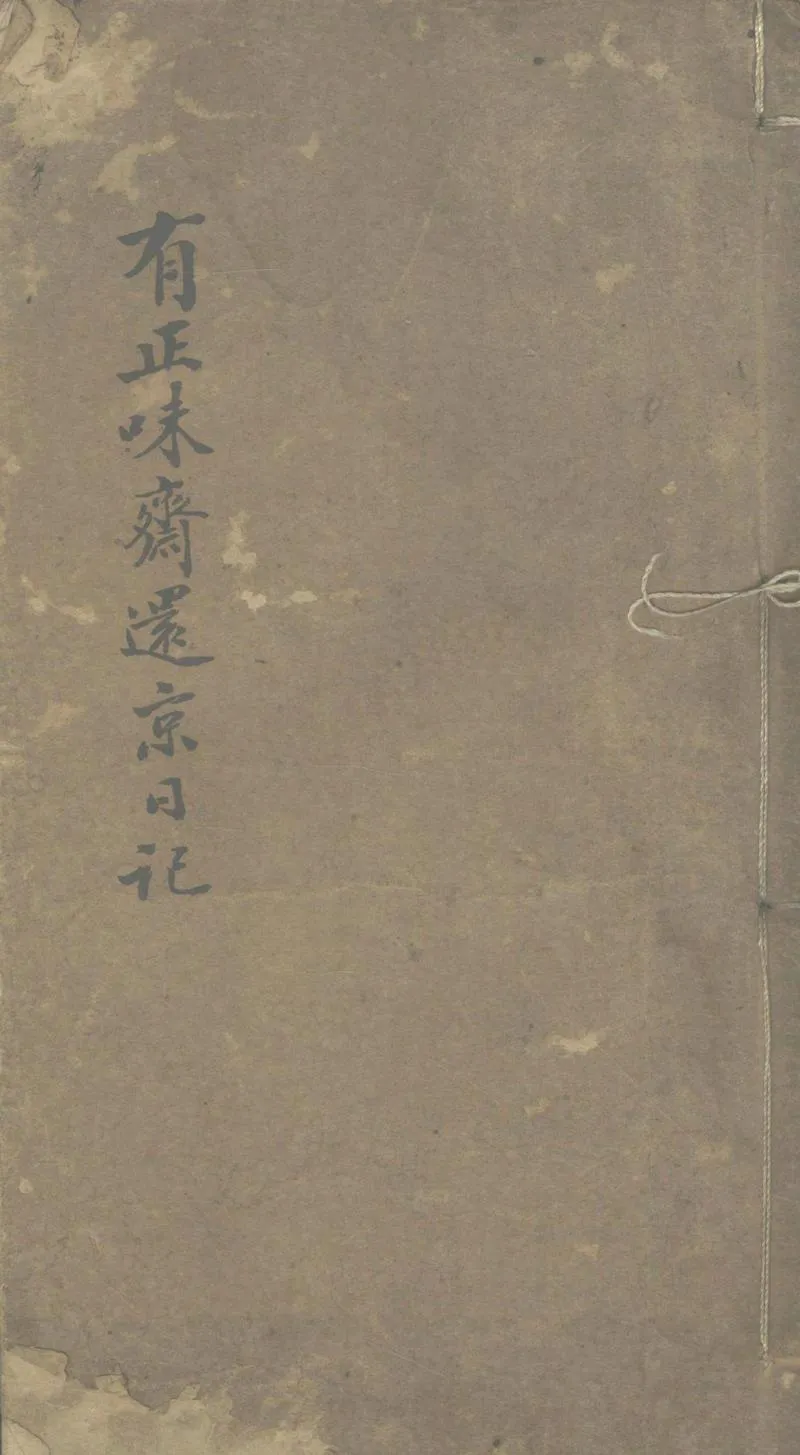 有正味齋還京日記